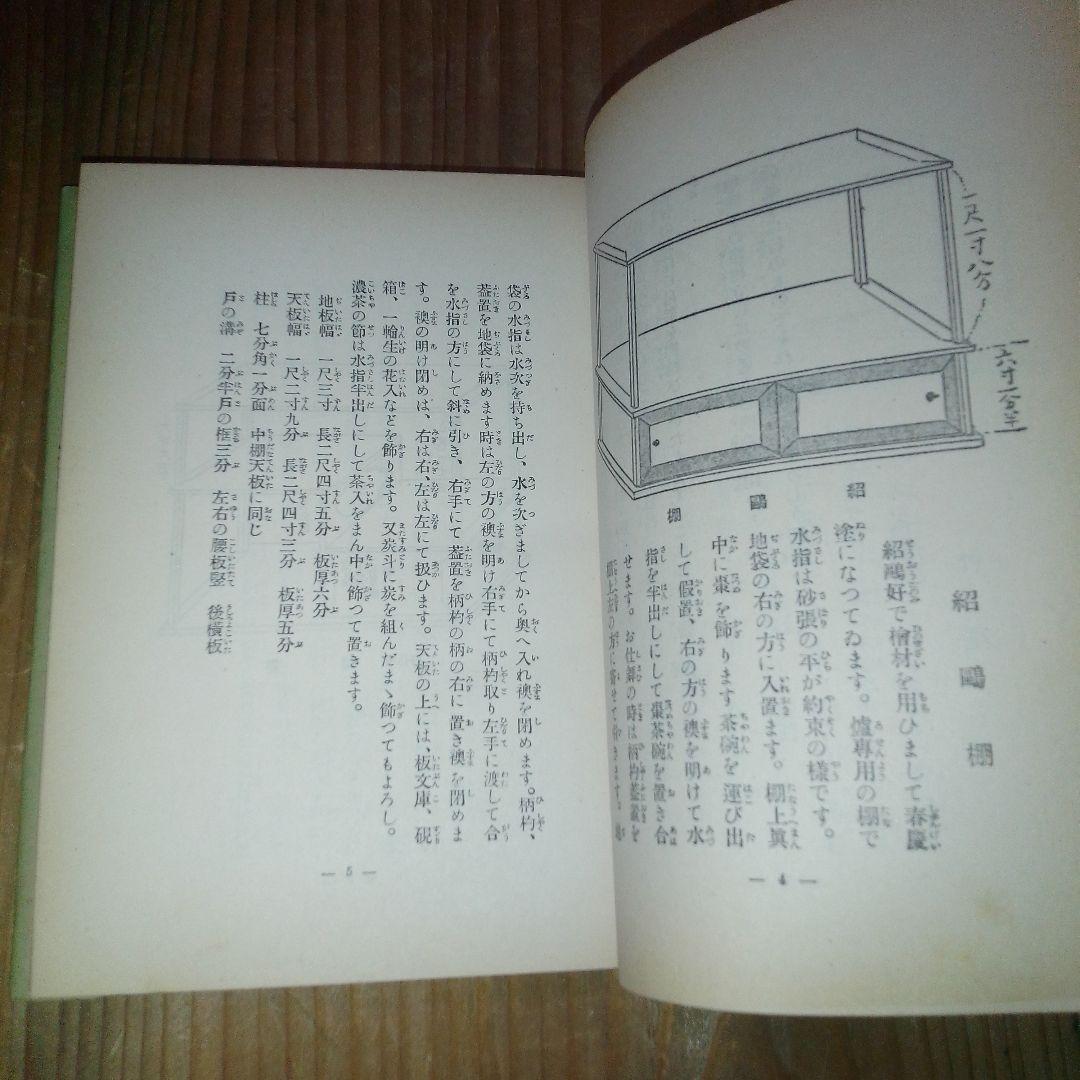 紹鷗棚
紹鷗好で檜材を用ひまして春慶
塗になつてゐます。爐專用の棚で
水指は砂張の平が約束の様です。
地袋の右の方に入置ます。棚上眞
中に棗を飾ります茶碗を運び出
して假置、右の方の襖を明けて水
指を半出しにして棗茶碗を置き合
せます。お仕舞の時は柄杓蓋置を
紹鷗棚
一尺一寸八分
六寸二分半
— 4 —
袋の水指は水次を持ち出し、水を次ぎましてから奥へ入れ襖を閉めます。柄杓、
蓋置を地袋に納めます時は左の方の襖を明け右手にて柄杓取り左手に渡して合
を水指の方にして斜に引き、右手にて蓋置を柄杓の柄の右に置き襖を閉めま
す。襖の明け閉めは、右は右、左は左にて扱ひます。天板の上には、板文庫、硯
箱、一輪生の花入などを飾ります。又炭斗に炭を組んだまゝ飾つてもよろし。
濃茶の節は水指半出しにして茶入をまん中に飾つて置きます。
地板幅 一尺三寸 長二尺四寸五分 板厚六分
天板幅 一尺二寸九分 長二尺四寸三分 板厚五分
柱 七分角一分面 中棚天板に同じ
戸の溝 二分半戸の框三分 左右の腰板竪 後横板
— 5 —